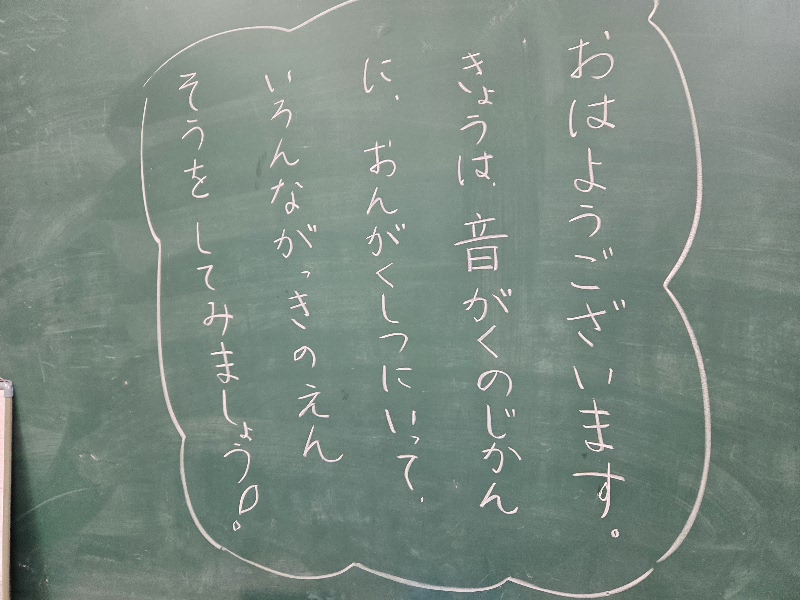 おはようございます。
きょうは、音がくのじかん
に、おんがくしつにいって、
いろんながっきのえん
そうをしてみましょう!